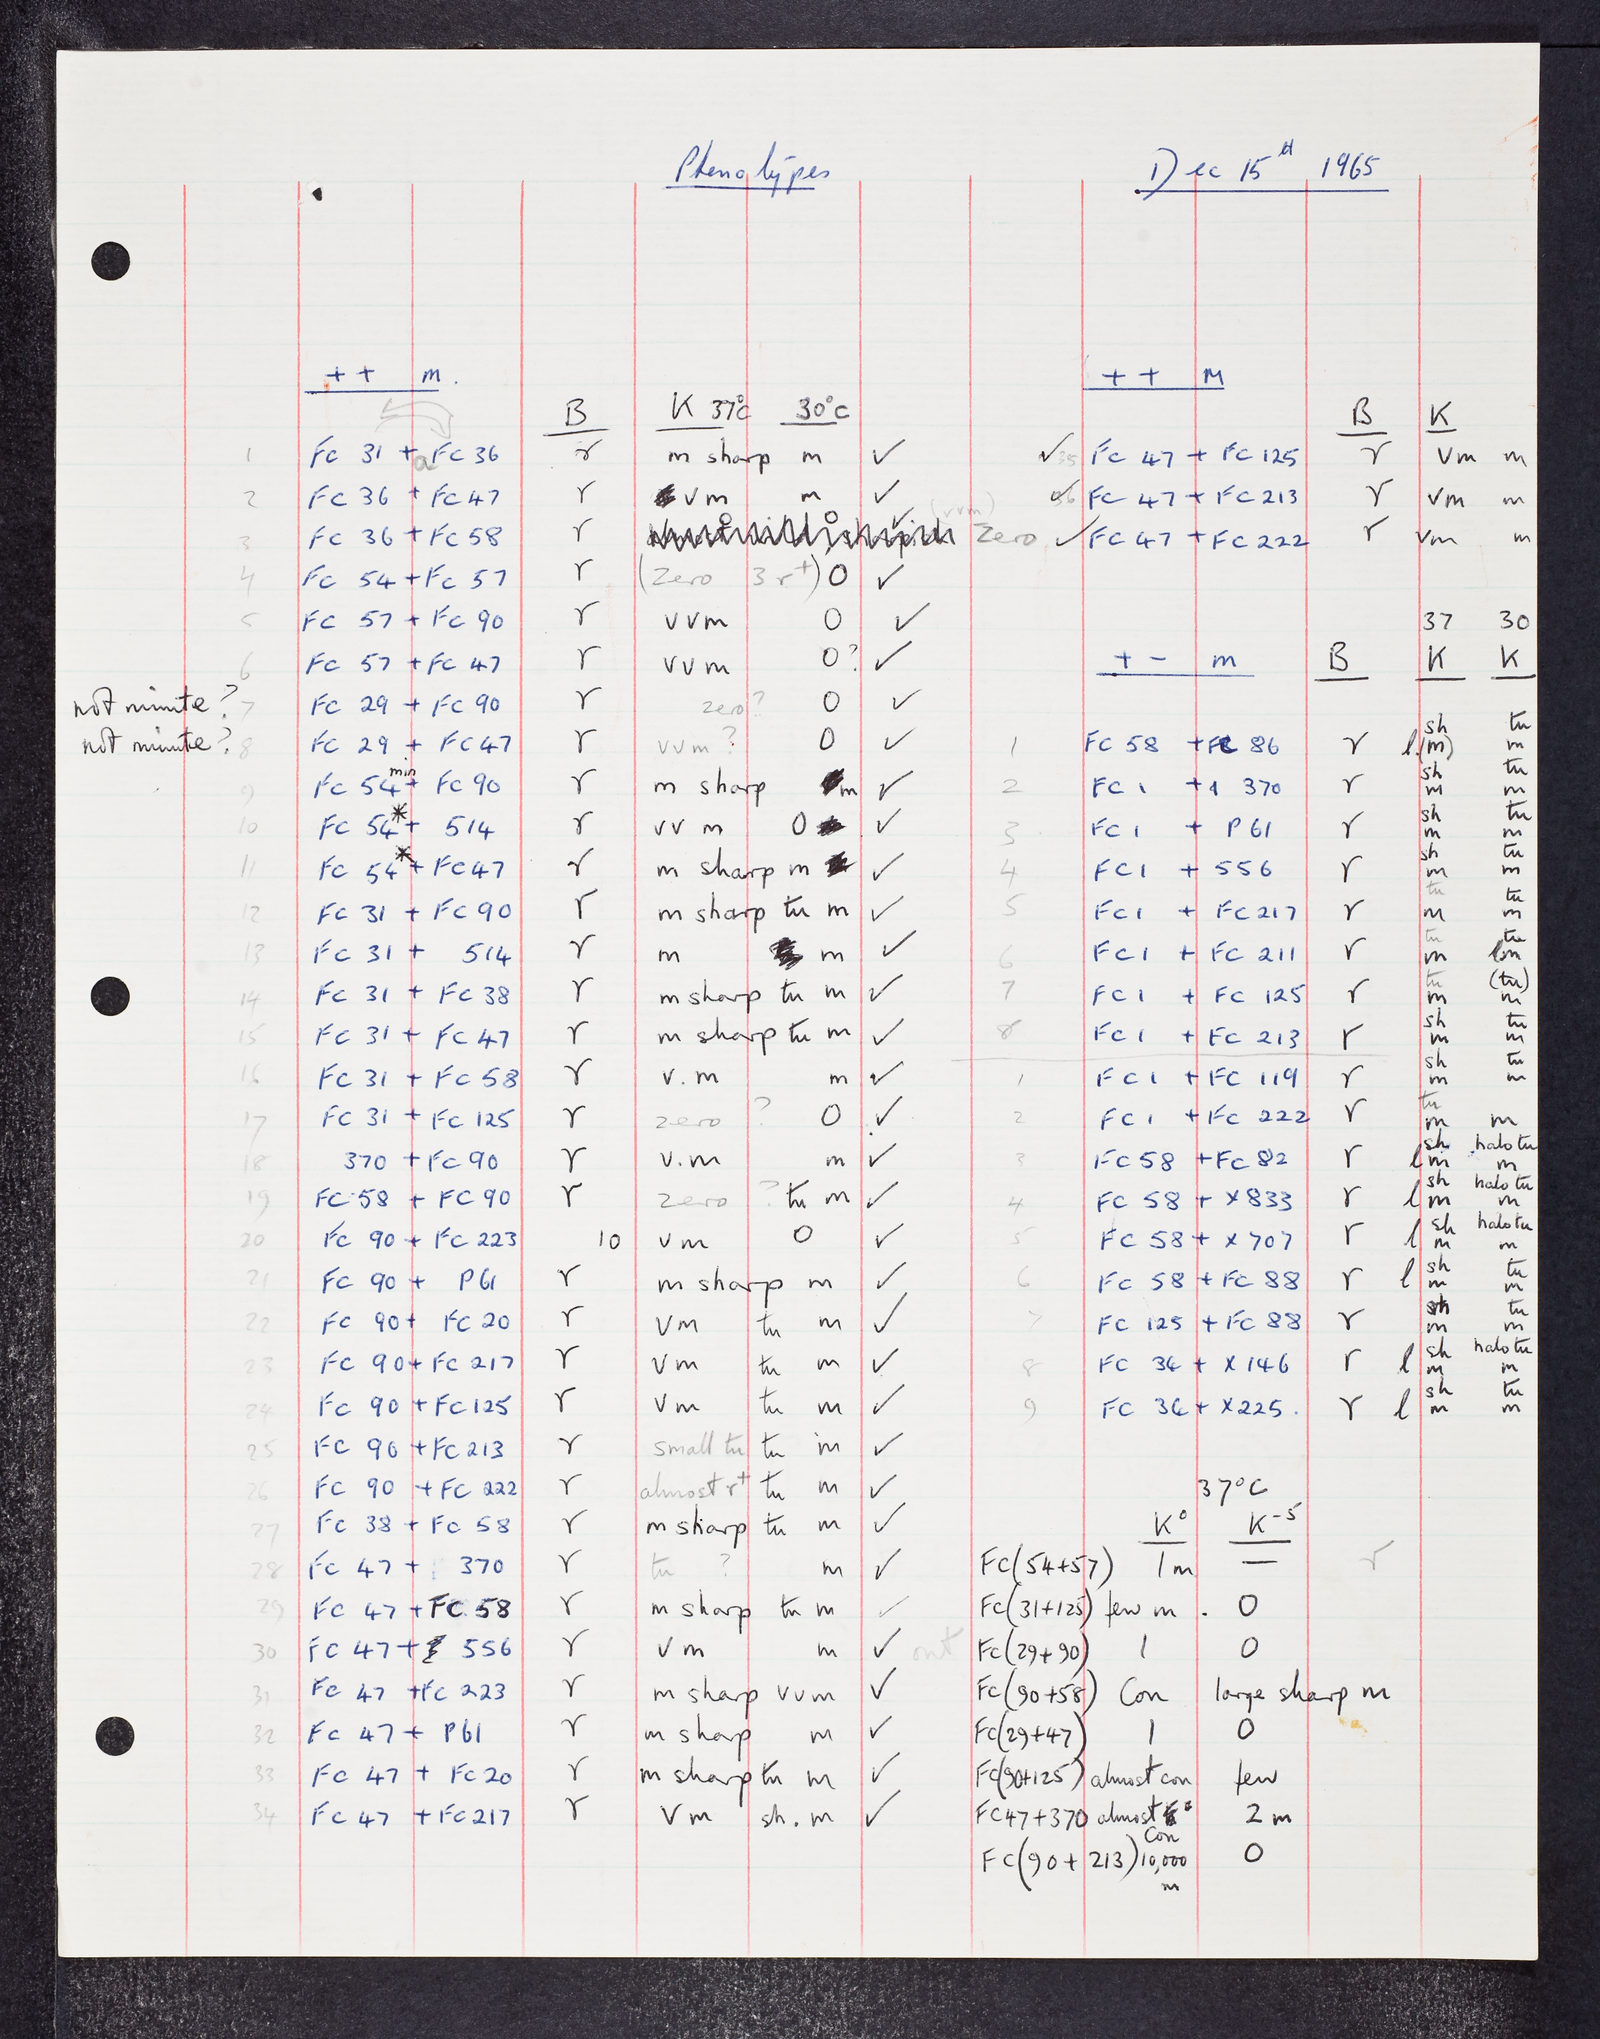 Phenotypes Dec 15th 1965
++ m.
B K 37°C 30°C
1 FC 31 + FC 36 r m sharp m ✓
2 FC 36 + FC 47 r vm m ✓
3 FC 36 + FC 58 r (vvm) zero
4 FC 54 + FC 57 r (zero 3 r+) 0 ✓
5 FC 57 + FC 90 r vvm 0 ✓
6 FC 57 + FC 47 r vvm 0? ✓
not minute? 7 FC 29 + FC 90 r zero? 0 ✓
not minute? 8 FC 29 + FC 47 r vvm? 0 ✓
9 FC 54 min + FC 90 r m sharp m ✓
10 FC 54* + 514 r vvm 0 ✓
11 FC 54* + FC 47 r m sharp m ✓
12 FC 31 + FC 90 r m sharp tu m ✓
13 FC 31 + 514 r m m ✓
14 FC 31 + FC 38 r m sharp tu m ✓
15 FC 31 + FC 47 r m sharp tu m ✓
16 FC 31 + FC 58 r v.m m ✓
17 FC 31 + FC 125 r zero ? 0 ✓
18 370 + FC 90 r v.m m ✓
19 FC 58 + FC 90 r zero ? tu m ✓
20 FC 90 + FC 223 10 vm 0 ✓
21 FC 90 + P61 r m sharp m ✓
22 FC 90 + FC 20 r vm tu m ✓
23 FC 90 + FC 217 r vm tu m ✓
24 FC 90 + FC 125 r vm tu m ✓
25 FC 90 + FC 213 r small tu tu m ✓
26 FC 90 + FC 222 r almost r+ tu m ✓
27 FC 38 + FC 58 r m sharp tu m ✓
28 FC 47 + 370 r tu ? m ✓
29 FC 47 + FC 58 r m sharp tu m ✓
30 FC 47 + 556 r vm m ✓
31 FC 47 + FC 223 r m sharp vvm ✓
32 FC 47 + P61 r m sharp m ✓
33 FC 47 + FC 20 r m sharp tu m ✓
34 FC 47 + FC 217 r vm sh. m ✓
++ m
B K
✓ 35 FC 47 + FC 125 r vm m
✓ 36 FC 47 + FC 213 r vm m
✓ FC 47 + FC 222 r vm m
37 30
+ - m B K K
1 FC 58 + FC 86 r l sh (m) tu m
2 FC 1 + 370 r sh m tu m
3 FC 1 + P61 r sh m tu m
4 FC 1 + 556 r sh m tu m
5 FC 1 + FC 217 r tu m tu m
6 FC 1 + FC 211 r tu m tu m
7 FC 1 + FC 125 r tu m (tu) m
8 FC 1 + FC 213 r sh m tu m
1 FC 1 + FC 119 r sh m tu m
2 FC 1 + FC 222 r tu m m
3 FC 58 + FC 82 r l sh m halo tu m
4 FC 58 + X833 r l sh m halo tu m
5 FC 58 + X707 r l sh m halo tu m
6 FC 58 + FC 88 r l sh m tu m
7 FC 125 + FC 88 r sh m tu m
8 FC 36 + X146 r l sh m halo tu m
9 FC 36 + X225. r l sh m tu m
37°C
K⁰ K⁻⁵
FC(54+57) 1m — r
FC(31+125) few m . 0
out FC(29+90) 1 0
FC(90+58) Con large sharp m
FC(29+47) 1 0
FC(90+125) almost con few
FC47+370 almost con 2 m
FC(90+213) 10,000 m 0